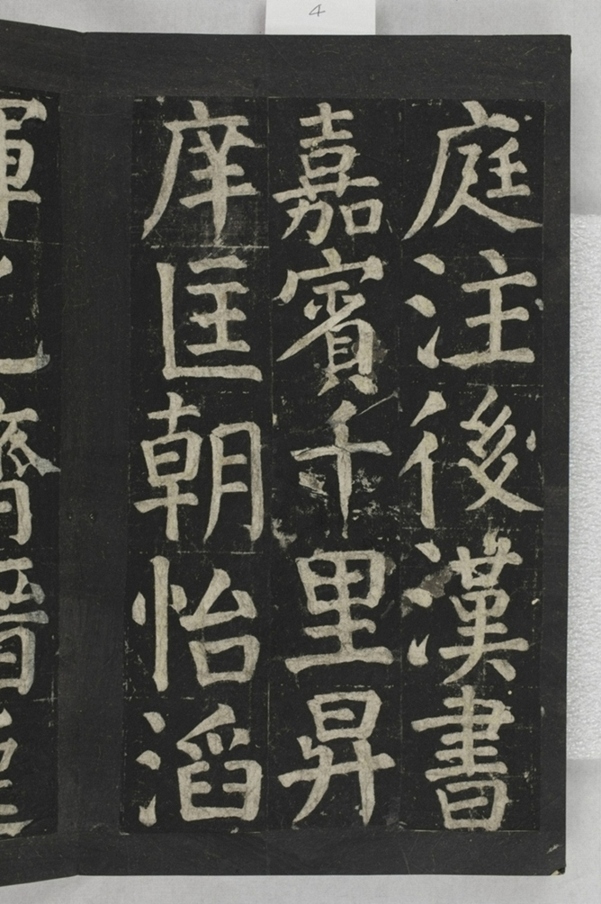 4
庭注後漢書
嘉賓千里昇
庠匡朝怡滔